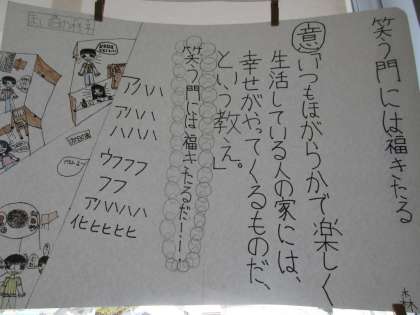 笑う門には福きたる
意いつもほがらかで楽しく
生活している人の家には、
幸せがやってくるものだ、
という教え。」
笑う門には福きたるだーー!
アハハ
アハハ
ハハハ
ウフフフ
フフ
アハハハハ
化ヒヒヒヒ
森